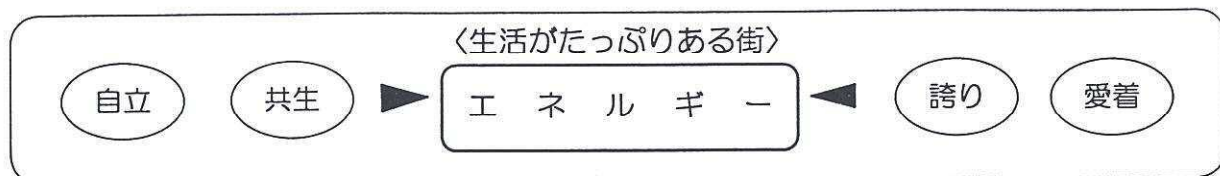 〈生活がたっぷりある街〉
自立 共生 エネルギー 誇り 愛着